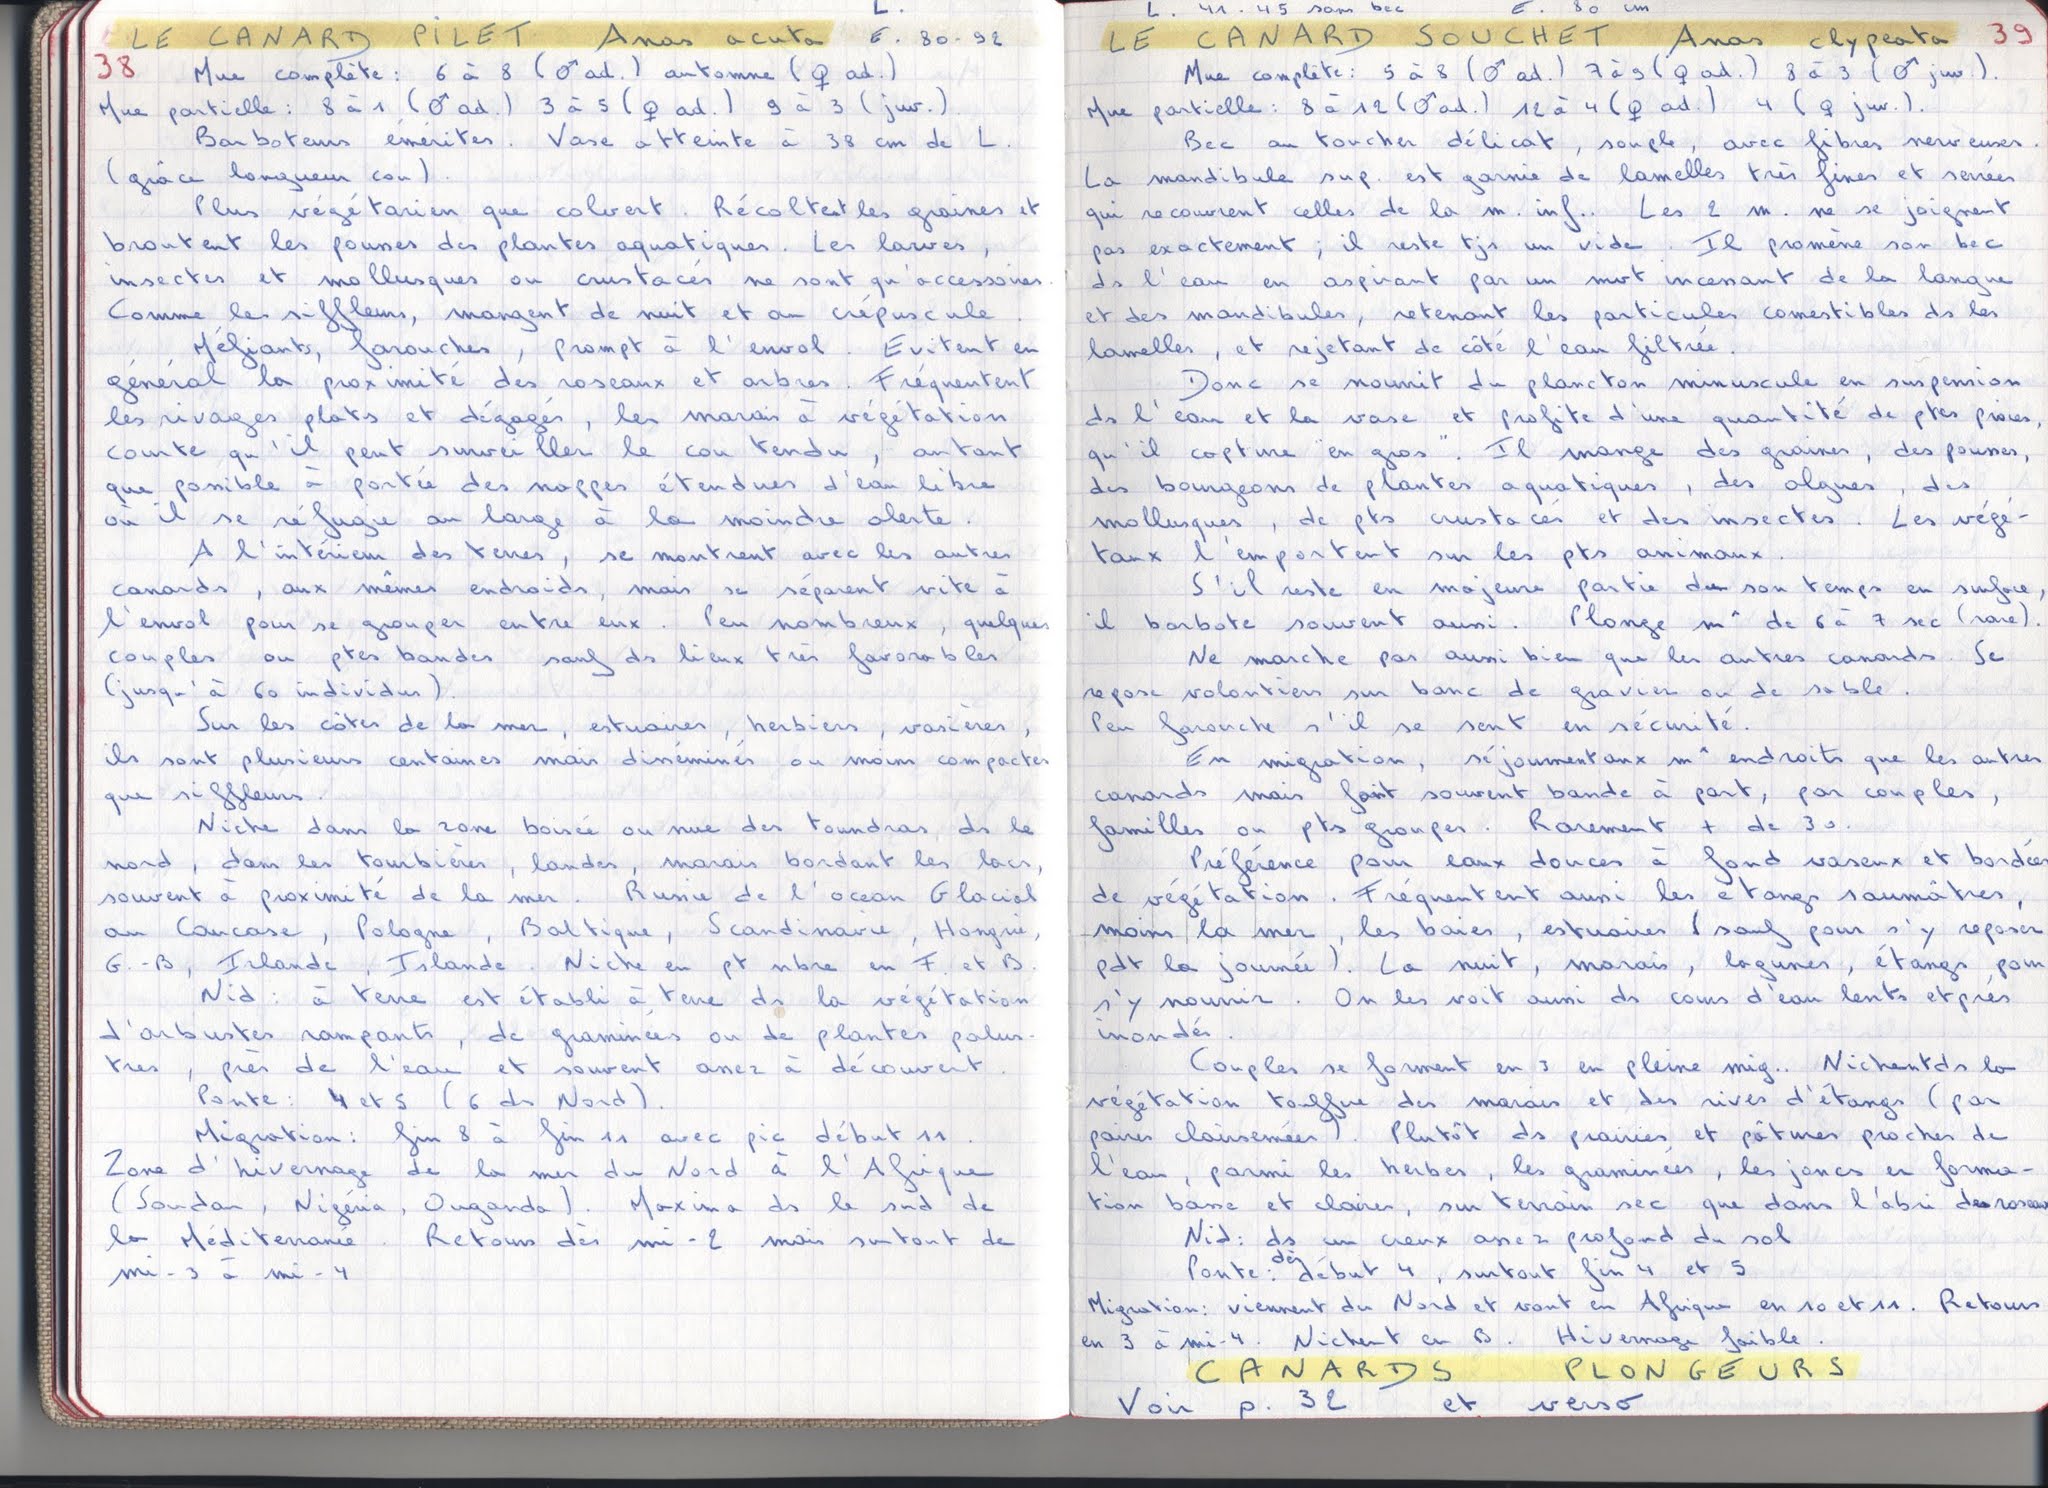 L.
LE CANARD PILET Anas acuta E. 80-92
38 Mue complète : 6 à 8 (♂ ad.) automne (♀ ad.)
Mue partielle : 8 à 1 (♂ ad.) 3 à 5 (♀ ad.) 9 à 3 (juv.)
Barboteurs émérites. Vase atteinte à 38 cm de L.
(grâce longueur cou).
Plus végétarien que colvert. Récoltent les graines et
broutent les pousses des plantes aquatiques. Les larves,
insectes et mollusques ou crustacés ne sont qu'accessoires.
Comme les siffleurs, mangent de nuit et au crépuscule.
Méfiants, farouches, prompt à l'envol. Evitent en
général la proximité des roseaux et arbres. Fréquentent
les rivages plats et dégagés, les marais à végétation
courte qu'il peut surveiller le cou tendu, autant
que possible à portée des nappes étendues d'eau libre
où il se réfugie au large à la moindre alerte.
A l'intérieur des terres, se montrent avec les autres
canards, aux mêmes endroids, mais se séparent vite à
l'envol pour se grouper entre eux. Peu nombreux, quelques
couples ou ptes bandes sauf ds lieux très favorables
(jusqu'à 60 individus).
Sur les côtes de la mer, estuaires, herbiers, vasières,
ils sont plusieurs centaines mais disséminés ou moins compactes
que siffleurs.
Niche dans la zone boisée ou nue des toundras ds le
nord, dans les tourbières, landes, marais bordant les lacs,
souvent à proximité de la mer. Russie de l'océan Glacial
au Caucase, Pologne, Baltique, Scandinavie, Hongrie,
G.-B, Irlande, Islande. Niche en pt nbre en F. et B.
Nid : à terre est établi à terre ds la végétation
d'arbustes rampants, de graminées ou de plantes palus-
tres, près de l'eau et souvent assez à découvert.
Ponte : 4 et 5 (6 ds Nord).
Migration : fin 8 à fin 11 avec pic début 11.
Zone d'hivernage de la mer du Nord à l'Afrique
(Soudan, Nigéria, Ouganda). Maxima ds le sud de
la Méditerranée. Retours dès mi-2 mais surtout de
mi-3 à mi-4
L. 41-45 sans bec E. 80 cm
LE CANARD SOUCHET Anas clypeata 39
Mue complète : 5 à 8 (♂ ad.) 7 à 9 (♀ ad.) 8 à 3 (♂ juv.).
Mue partielle : 8 à 12 (♂ ad.) 12 à 4 (♀ ad.) 4 (♀ juv.).
Bec au toucher délicat, souple, avec fibres nerveuses.
La mandibule sup. est garnie de lamelles très fines et serrées
qui recouvrent celles de la m. inf.. Les 2 m. ne se joignent
pas exactement ; il reste tjs un vide. Il promène son bec
ds l'eau en aspirant par un mvt incessant de la langue
et des mandibules, retenant les particules comestibles ds les
lamelles, et rejetant de côté l'eau filtrée.
Donc se nourrit du plancton minuscule en suspension
ds l'eau et la vase et profite d'une quantité de ptes proies,
qu'il capture "en gros". Il mange des graines, des pousses,
des bourgeons de plantes aquatiques, des algues, des
mollusques, de pts crustacés et des insectes. Les végé-
taux l'emportent sur les pts animaux.
S'il reste en majeure partie de son temps en surface,
il barbote souvent aussi. Plonge m^ de 6 à 7 sec (rare).
Ne marche pas aussi bien que les autres canards. Se
repose volontiers sur banc de gravier ou de sable.
Peu farouche s'il se sent en sécurité.
En migration, séjournent aux m^ endroits que les autres
canards mais font souvent bande à part, par couples,
familles ou pts groupes. Rarement + de 30.
Préférence pour eaux douces à fond vaseux et bordées
de végétation. Fréquentent aussi les étangs saumâtres,
moins la mer, les baies, estuaires (sauf pour s'y reposer
pdt la journée). La nuit, marais, lagunes, étangs pour
s'y nourrir. On les voit aussi ds cours d'eau lents et près
inondés.
Couples se forment en 3 en pleine mig.. Nichent ds la
végétation touffue des marais et des rives d'étangs (par
paires clairsemées). Plutôt ds prairies et pâtures proches de
l'eau, parmi les herbes, les graminées, les joncs en forma-
tion basse et claires, sur terrain sec que dans l'abri des roseaux
Nid : ds un creux assez profond du sol
Ponte : dès début 4, surtout fin 4 et 5
Migration : viennent du Nord et vont en Afrique en 10 et 11. Retours
en 3 à mi-4. Nichent en B. Hivernage faible.
CANARDS PLONGEURS
Voir p. 32 et verso